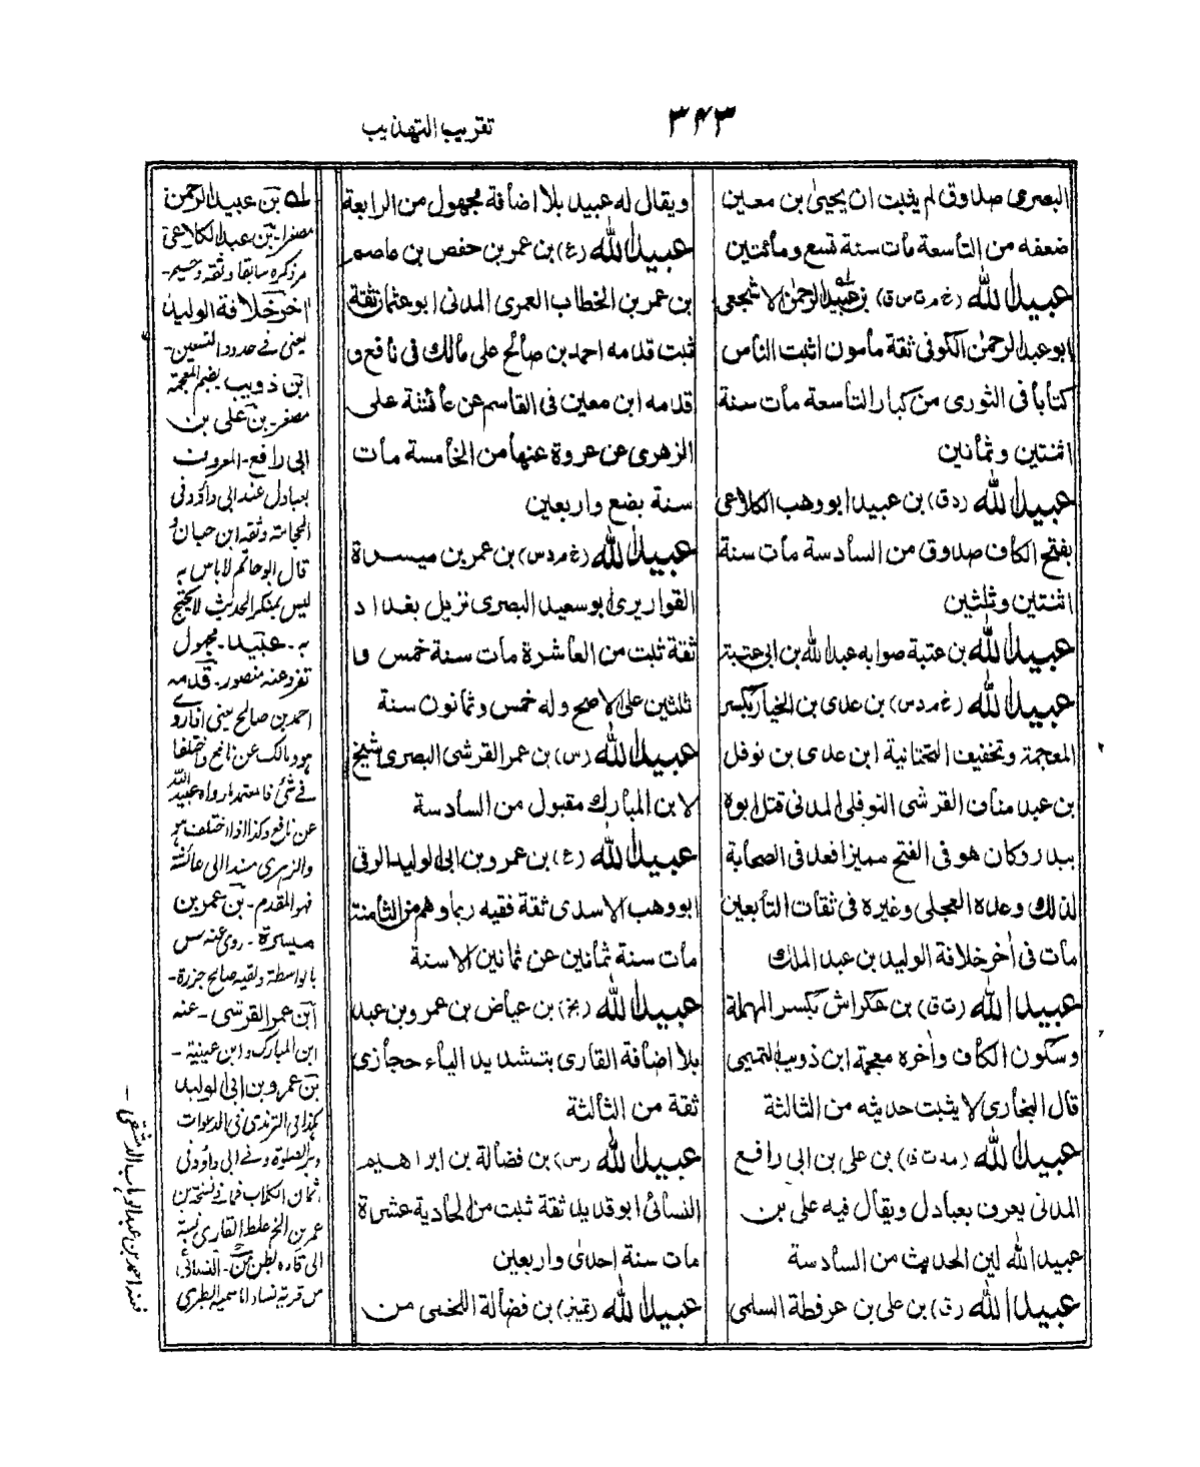 تقريب التهذيب
۳۴۳
البصرى صدوق لم يثبت ان يحيىٰ بن معين
ضعفه من التاسعة مات سنة تسع ومائتين
عبيد الله (خ م ت س ق) بن عبيد الرحمٰن الاشجعى
ابو عبد الرحمٰن الكوفى ثقة مأمون اثبت الناس
كتابا فى الثورى من كبار التاسعة مات سنة
اثنتين وثمانين
عبيد الله (د ق) بن عبيد ابو وهب الكلاعى
بفتح الكاف صدوق من السادسة مات سنة
اثنتين وثلثين
عبيد الله بن عتبة صوابه عبد الله بن ابى عتبة
عبيد الله (خ م د س) بن عدى بن الخيار بكسر
المعجمة وتخفيف التحتانية ابن عدى بن نوفل
بن عبد مناف القرشى النوفلى المدنى قتل ابوه
ببدر وكان هو فى الفتح مميزا فعد فى الصحابة
لذلك وعده العجلى وغيره فى ثقات التابعين
مات فى اٰخر خلافة الوليد بن عبد الملك
عبيد الله (ت ق) بن عكراش بكسر المهملة
وسكون الكاف واٰخره معجمة ابن ذويب التميمى
قال البخارى لا يثبت حديثه من الثالثة
عبيد الله (م د ت ق) بن على بن ابى رافع
المدنى يعرف بعبادل ويقال فيه على بن
عبيد الله لين الحديث من السادسة
عبيد الله (ق) بن على بن عرفطة السلمى
ويقال له عبيد بلا اضافة مجهول من الرابعة
عبيد الله (ع) بن عمر بن حفص بن عاصم
بن عمر بن الخطاب العمرى المدنى ابو عثمان ثقة
ثبت قدمه احمد بن صالح على مالك فى نافع و
قدمه ابن معين فى القاسم عن عائشة على
الزهرى عن عروة عنها من الخامسة مات
سنة بضع واربعين
عبيد الله (خ م د س) بن عمر بن ميسرة
القواريرى ابو سعيد البصرى نزيل بغداد
ثقة ثبت من العاشرة مات سنة خمس و
ثلثين على الاصح وله خمس وثمانون سنة
عبيد الله (س) بن عمر القرشى البصرى شيخ
لابن المبارك مقبول من السادسة
عبيد الله (ع) بن عمرو بن ابى الوليد الرقى
ابو وهب الاسدى ثقة فقيه ربما وهم من الثامنة
مات سنة ثمانين عن ثمانين الا سنة
عبيد الله (بخ) بن عياض بن عمرو بن عبد
بلا اضافة القارى بتشديد الياء حجازى
ثقة من الثالثة
عبيد الله (س) بن فضالة بن ابراهيم
النسائى ابو قديد ثقة ثبت من الحادية عشرة
مات سنة احدىٰ واربعين
عبيد الله (تمييز) بن فضالة اللخمى من
له بن عبيد الرحمن
مصغرا - بن عبد الكلاعى
مر ذكره سابقا وثقه دحيم -
اٰخر خلافة الوليد
يعنى فى حدود التسعين -
ابن ذويب بضم المعجمة
مصغر - بن على بن
ابى رافع - المعروف
بعبادل عند ابى داؤد فى
الحجامة وثقه ابن حبان و
قال ابو حاتم لا باس به
ليس بمنكر الحديث لا يحتج
به - عبيد - مجهول
تفرد عنه منصور - قدمه
احمد بن صالح يعنى اذا رو
هو ومالك عن نافع واختلفا
فى شئ فاعتمد ما رواه عبيد الله
عن نافع وكذا اذا اختلف هو
والزهرى مسندا الى عائشة
فهو المقدم - بن عمر بن
ميسرة - روى عنه س
بالواسطة ولقيه صالح جزرة -
ابن عمر القرشى - عنه
ابن المبارك وابن عيينة -
بن عمرو بن ابى الوليد
كذا فى الترمذى فى الدعوات
وبر الصلوة وفى ابى داؤد فى
عمر بن الخ غلط القارى نسبة
الى قاره بطن من - النسائى
من قرية نسا
احمد بن عبد الوهاب الدمشقى -